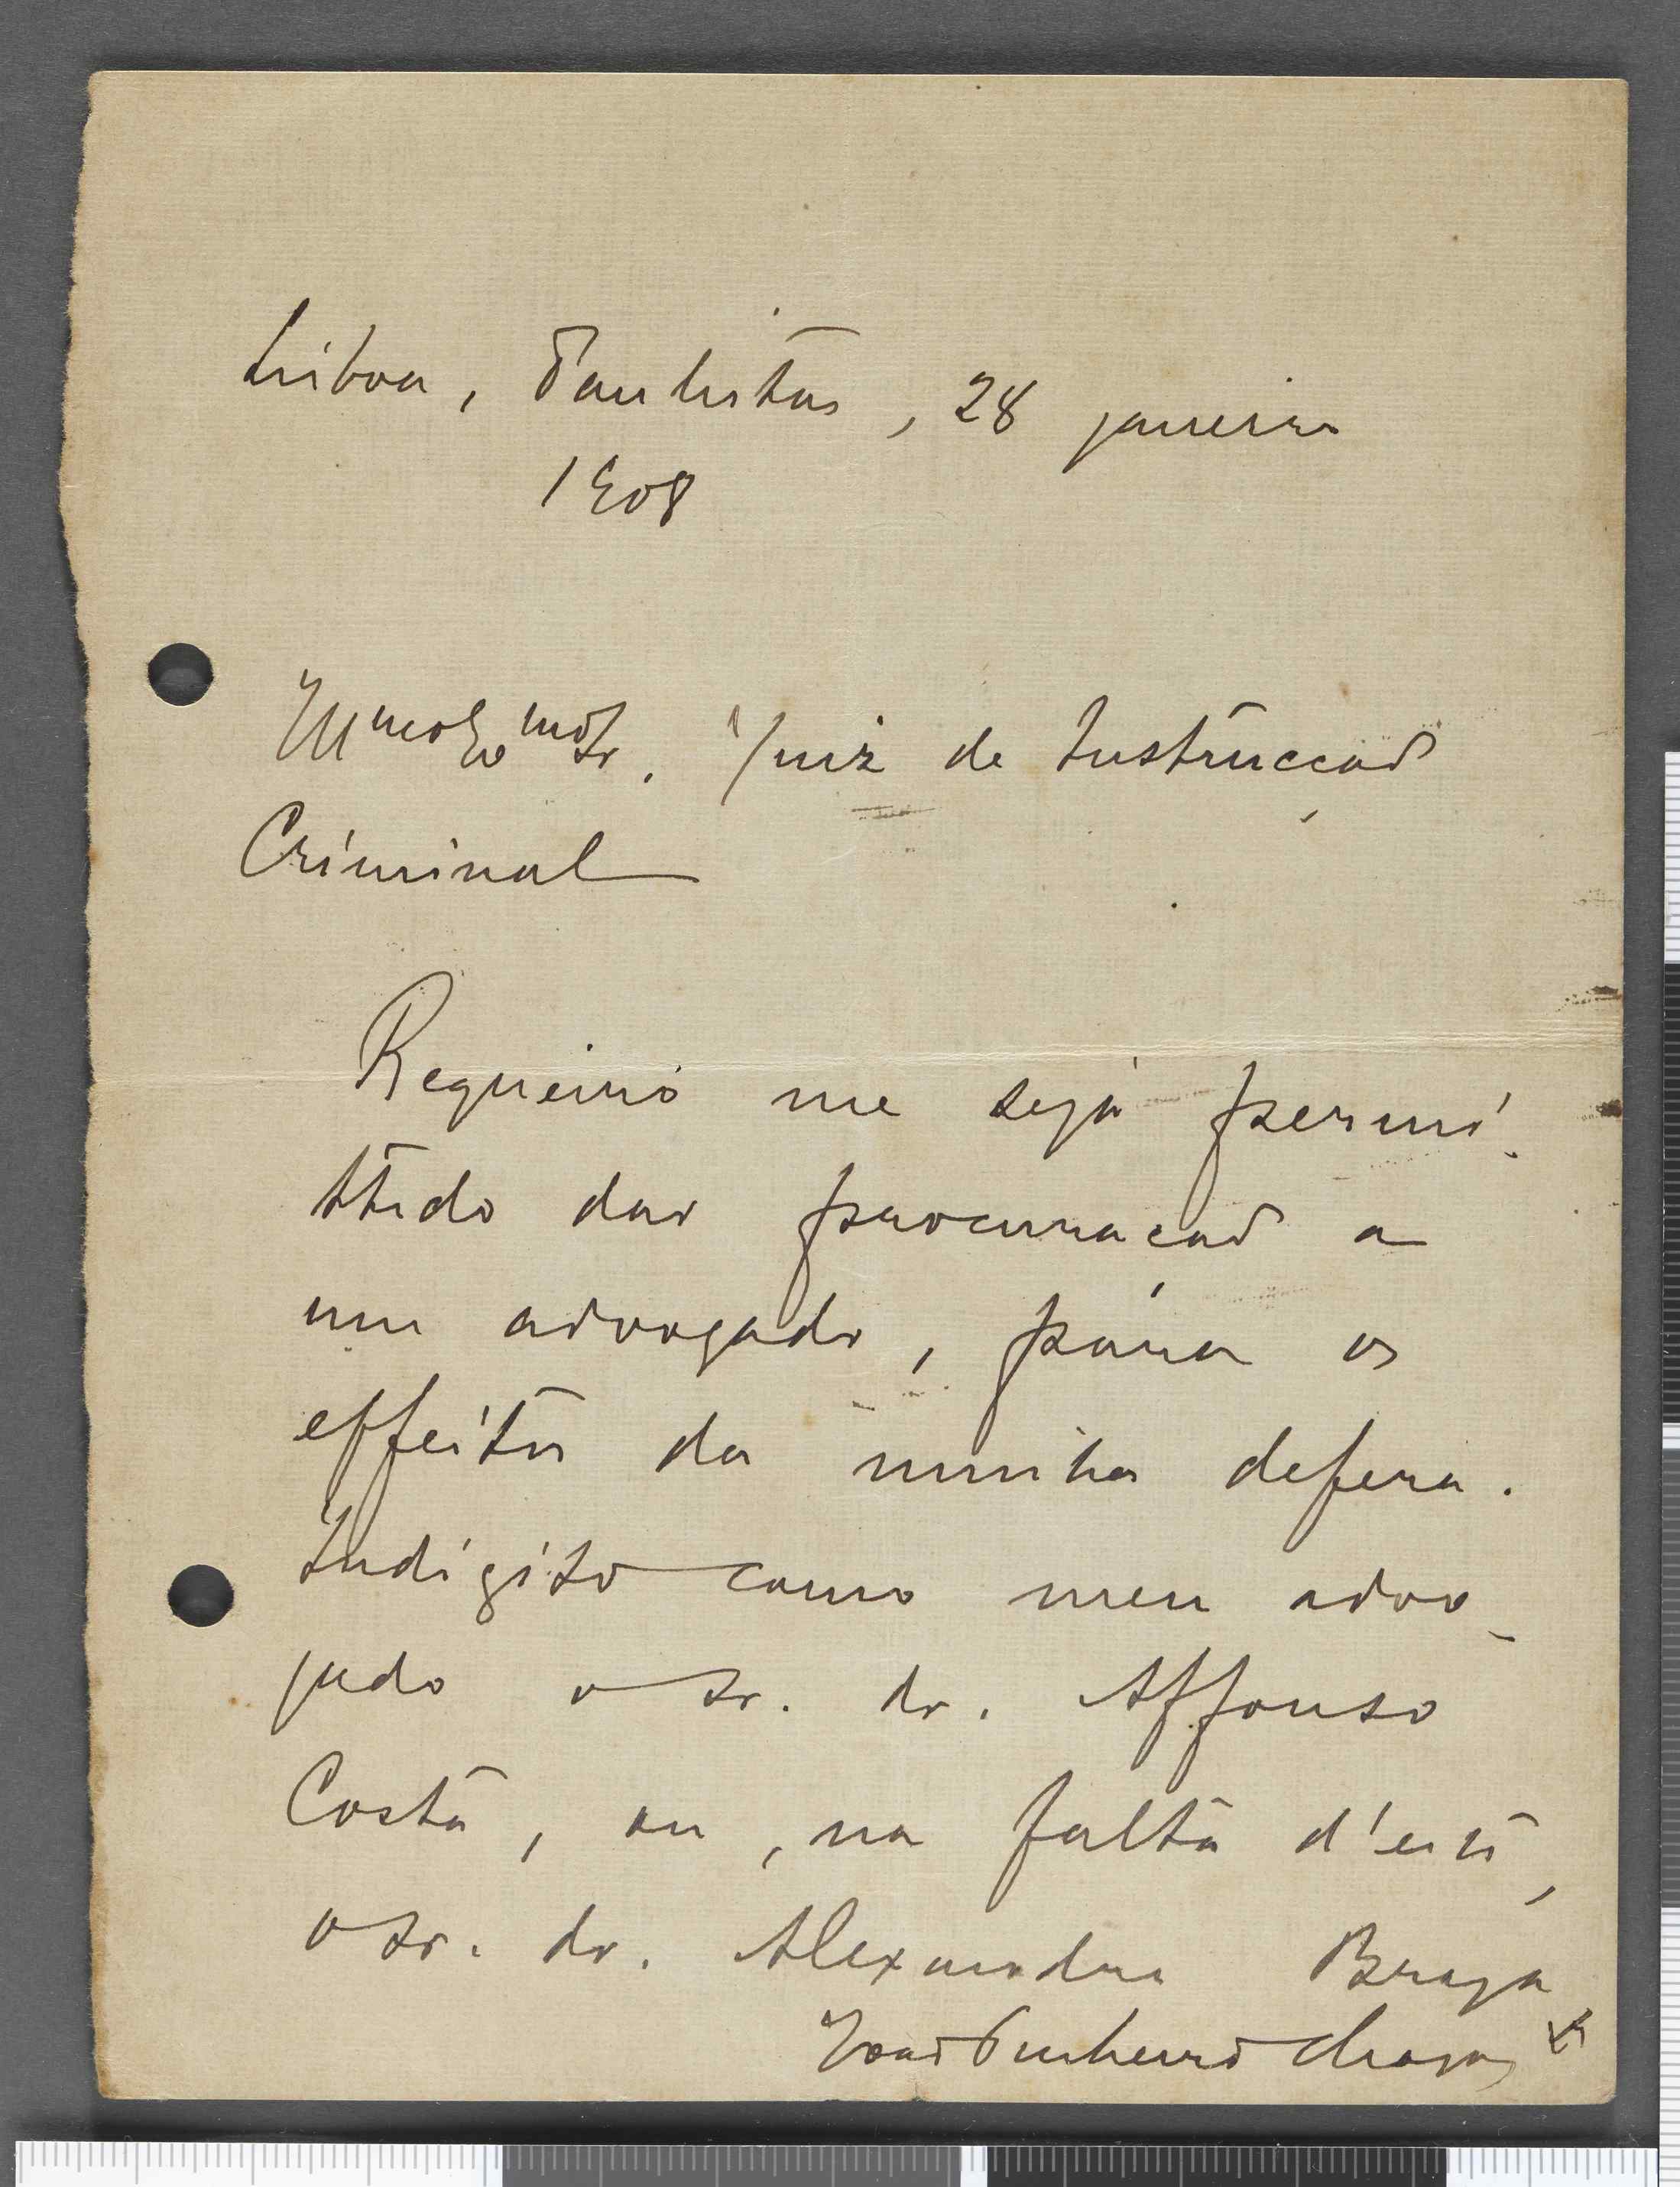 Lisboa, Paulistas, 28 janeiro
1908
Illmo Exmo Sr. Juiz de Instrucção
Criminal
Requeiro me seja permi-
ttido dar procuração a
um advogado, para os
effeitos da minha defesa.
Indigito como meu advo-
gado o sr. dr. Affonso
Costa, ou, na falta d'este,
o sr. dr. Alexandre Braga
João Pinheiro Chagas